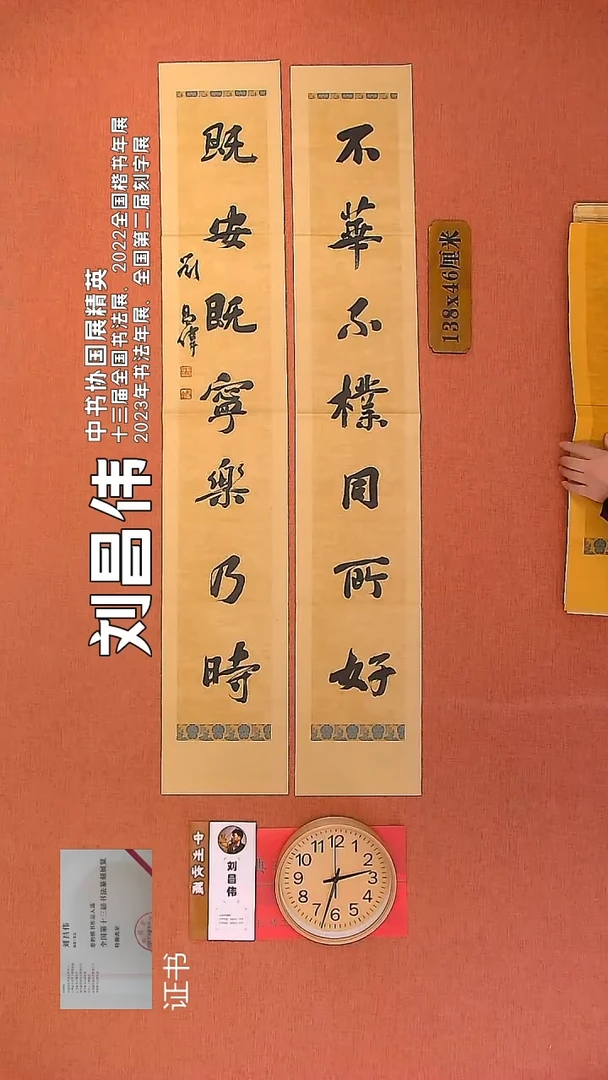 不華不樸同所好
既安既寧樂乃時
劉昌偉
138x46厘米
中书协国展精英
十三届全国书法展、2022全国楷书年展
2023年书法年展、全国第二届刻字展
刘昌伟
刘昌伟
12
1
2
3
4
5
6
7
8
9
10
11
刘昌伟
全国第十三届书法篆刻展览
证书